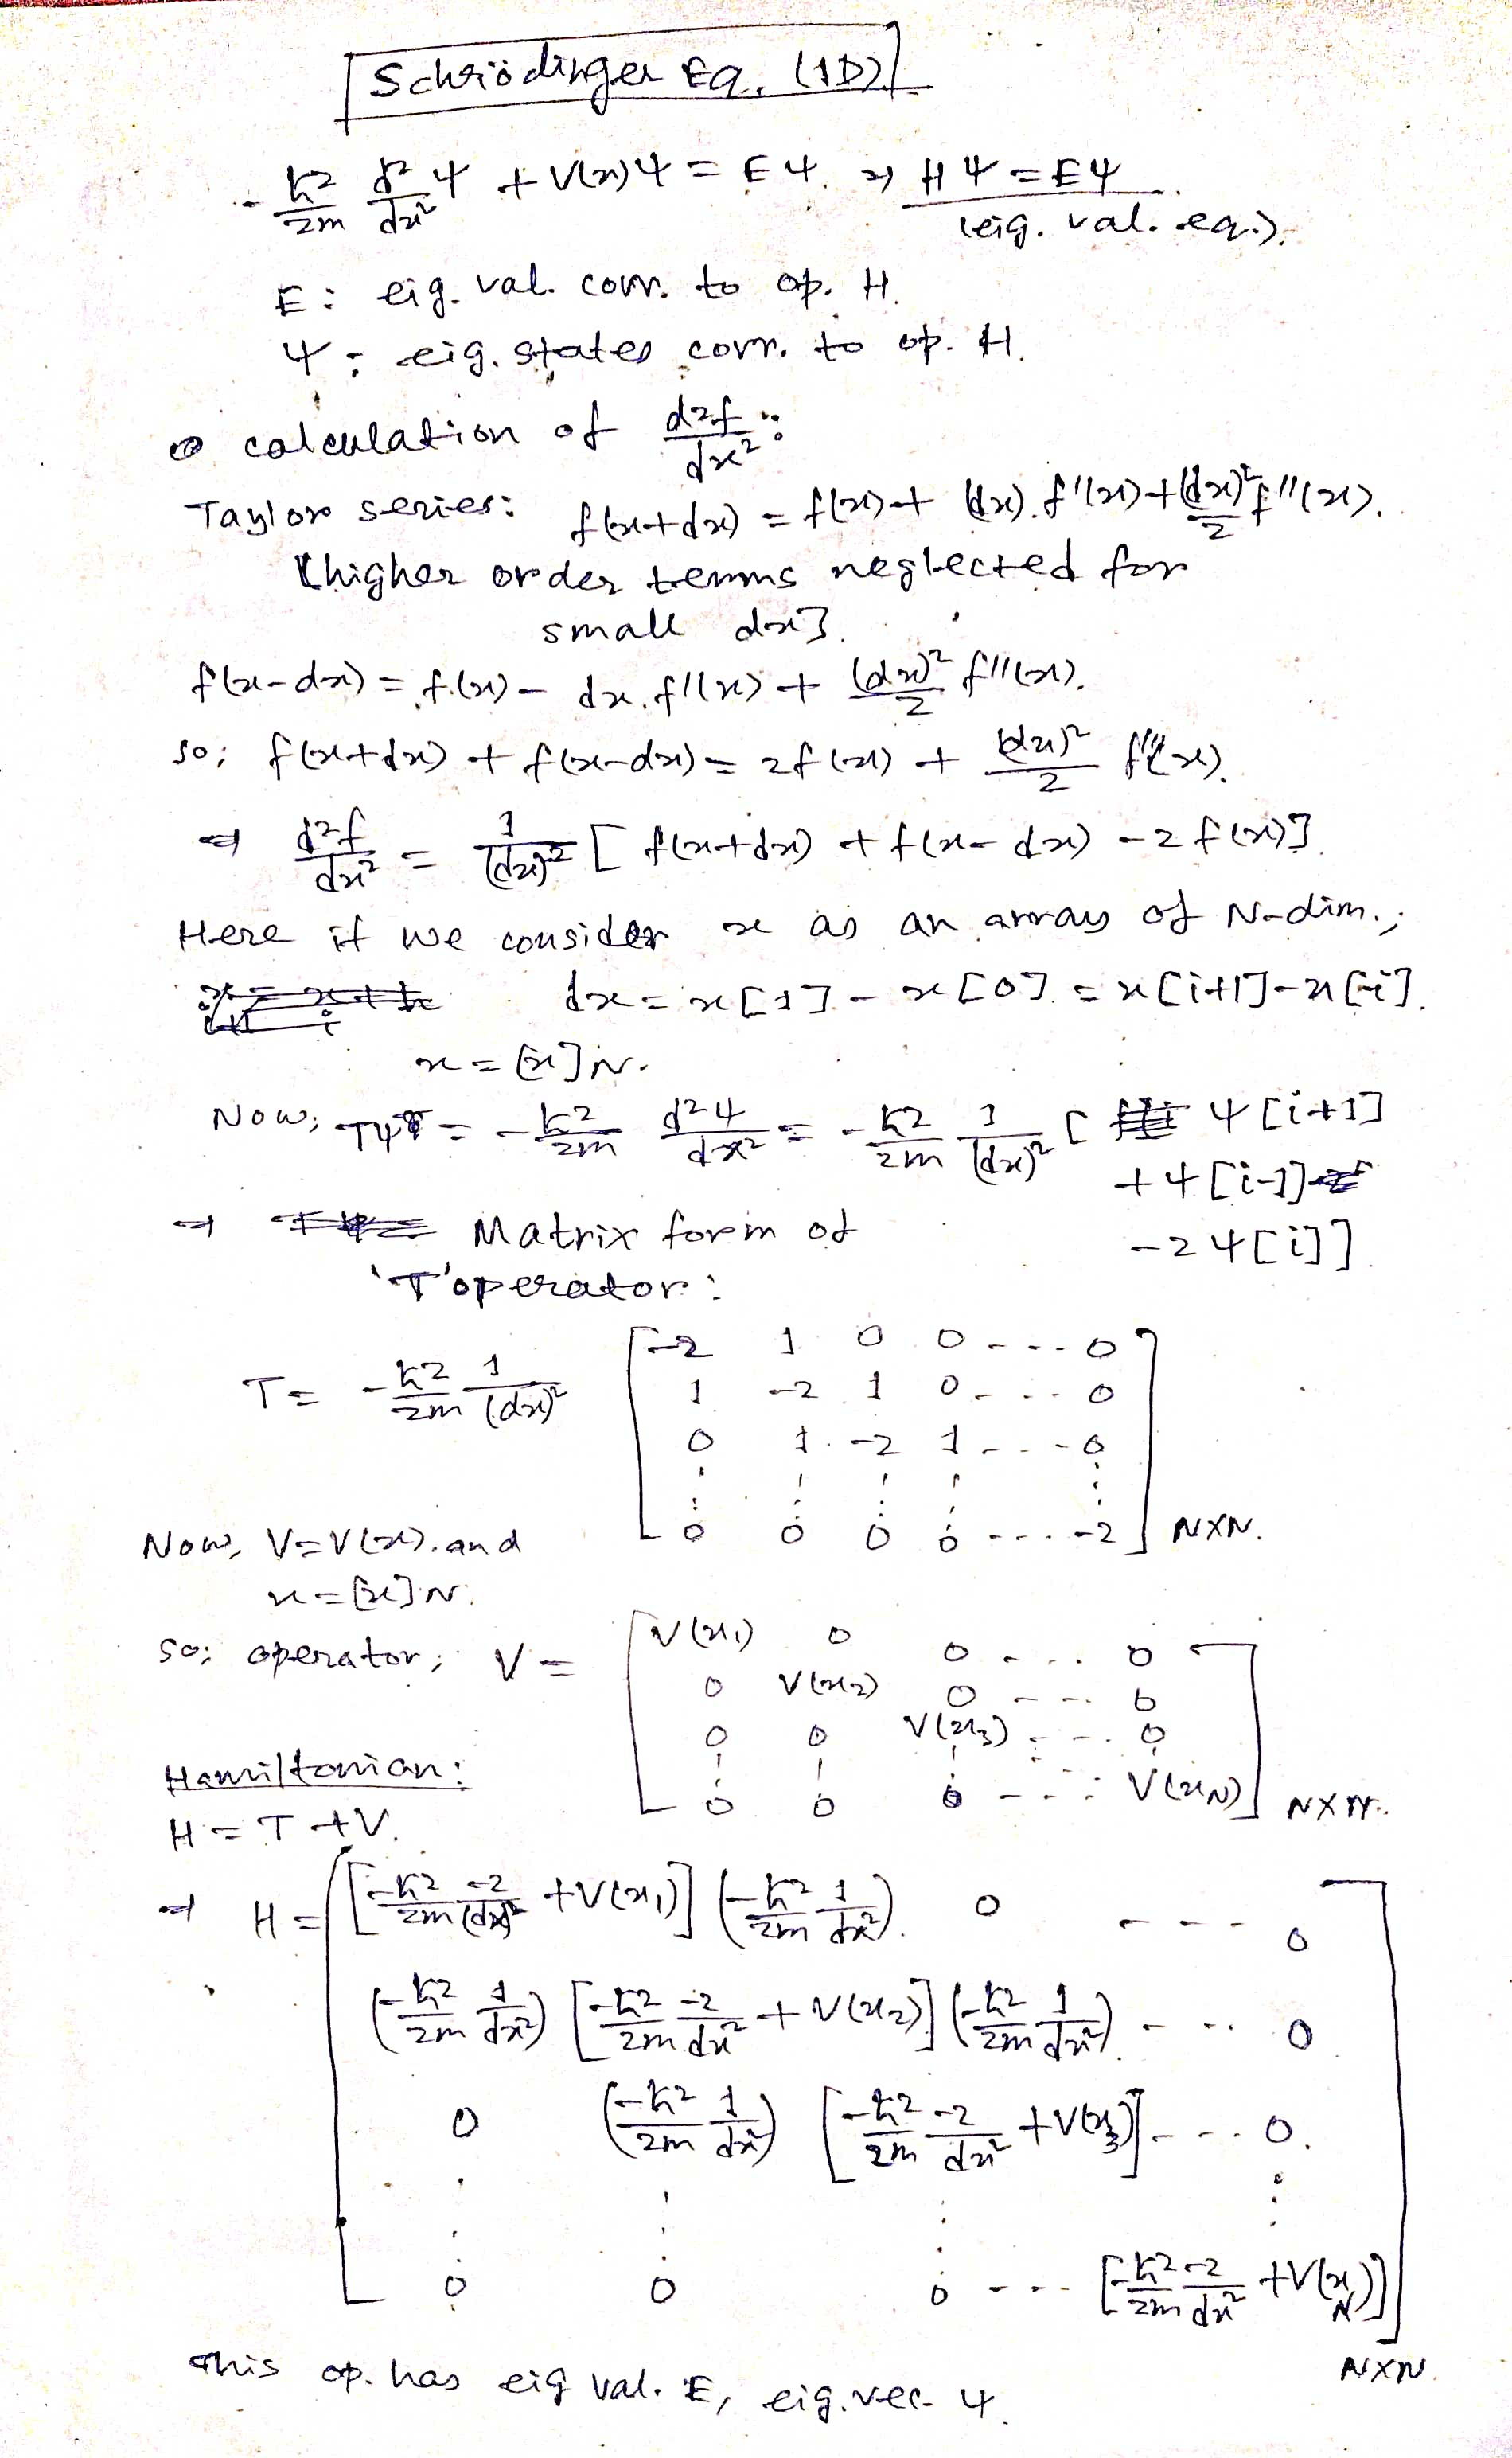 Schrödinger Eq. (1D)
- ħ²/2m d²/dx² ψ + V(x)ψ = Eψ. ⇒ Hψ = Eψ
(eig. val. eq.).
E: eig. val. corr. to op. H.
ψ: eig. states corr. to op. H.
calculation of d²f/dx²:
Taylor series: f(x+dx) = f(x) + (dx).f'(x) + (dx)²/2 f''(x).
{higher order terms neglected for
small dx}.
f(x-dx) = f(x) - dx.f'(x) + (dx)²/2 f''(x).
so; f(x+dx) + f(x-dx) = 2f(x) + (dx)²/2 f''(x).
⇒ d²f/dx² = 1/(dx)² [f(x+dx) + f(x-dx) - 2f(x)].
Here if we consider x as an array of N-dim.;
dx = x[1] - x[0] = x[i+1] - x[i].
x = [x]N.
Now; Tψ = - ħ²/2m d²ψ/dx² = - ħ²/2m 1/(dx)² [ψ[i+1]
+ ψ[i-1]
- 2ψ[i]].
⇒ Matrix form of
'T' operator:
[-2 1 0 0 ---- 0]
T = - ħ²/2m 1/(dx)² [1 -2 1 0 ---- 0]
[0 1 -2 1 ---- 0]
[0 0 0 0 ---- -2] N×N.
Now, V = V(x). and
x = [x]N.
so; operator; V = [V(x₁) 0 0 ---- 0]
[0 V(x₂) 0 ---- 0]
[0 0 V(x₃) ---- 0]
[0 0 0 ---- V(x_N)] N×N.
Hamiltonian:
H = T + V.
⇒ H = [[-ħ²/2m -2/(dx)² + V(x₁)] (-ħ²/2m 1/dx²) 0 ---- 0]
(-ħ²/2m 1/dx²) [-ħ²/2m -2/dx² + V(x₂)] (-ħ²/2m 1/dx²) ---- 0
0 (-ħ²/2m 1/dx²) [-ħ²/2m -2/dx² + V(x₃)] ---- 0.
0 0 0 ---- [-ħ²/2m -2/dx² + V(x_N)]]
N×N.
This op. has eig val. E, eig. vec. ψ.